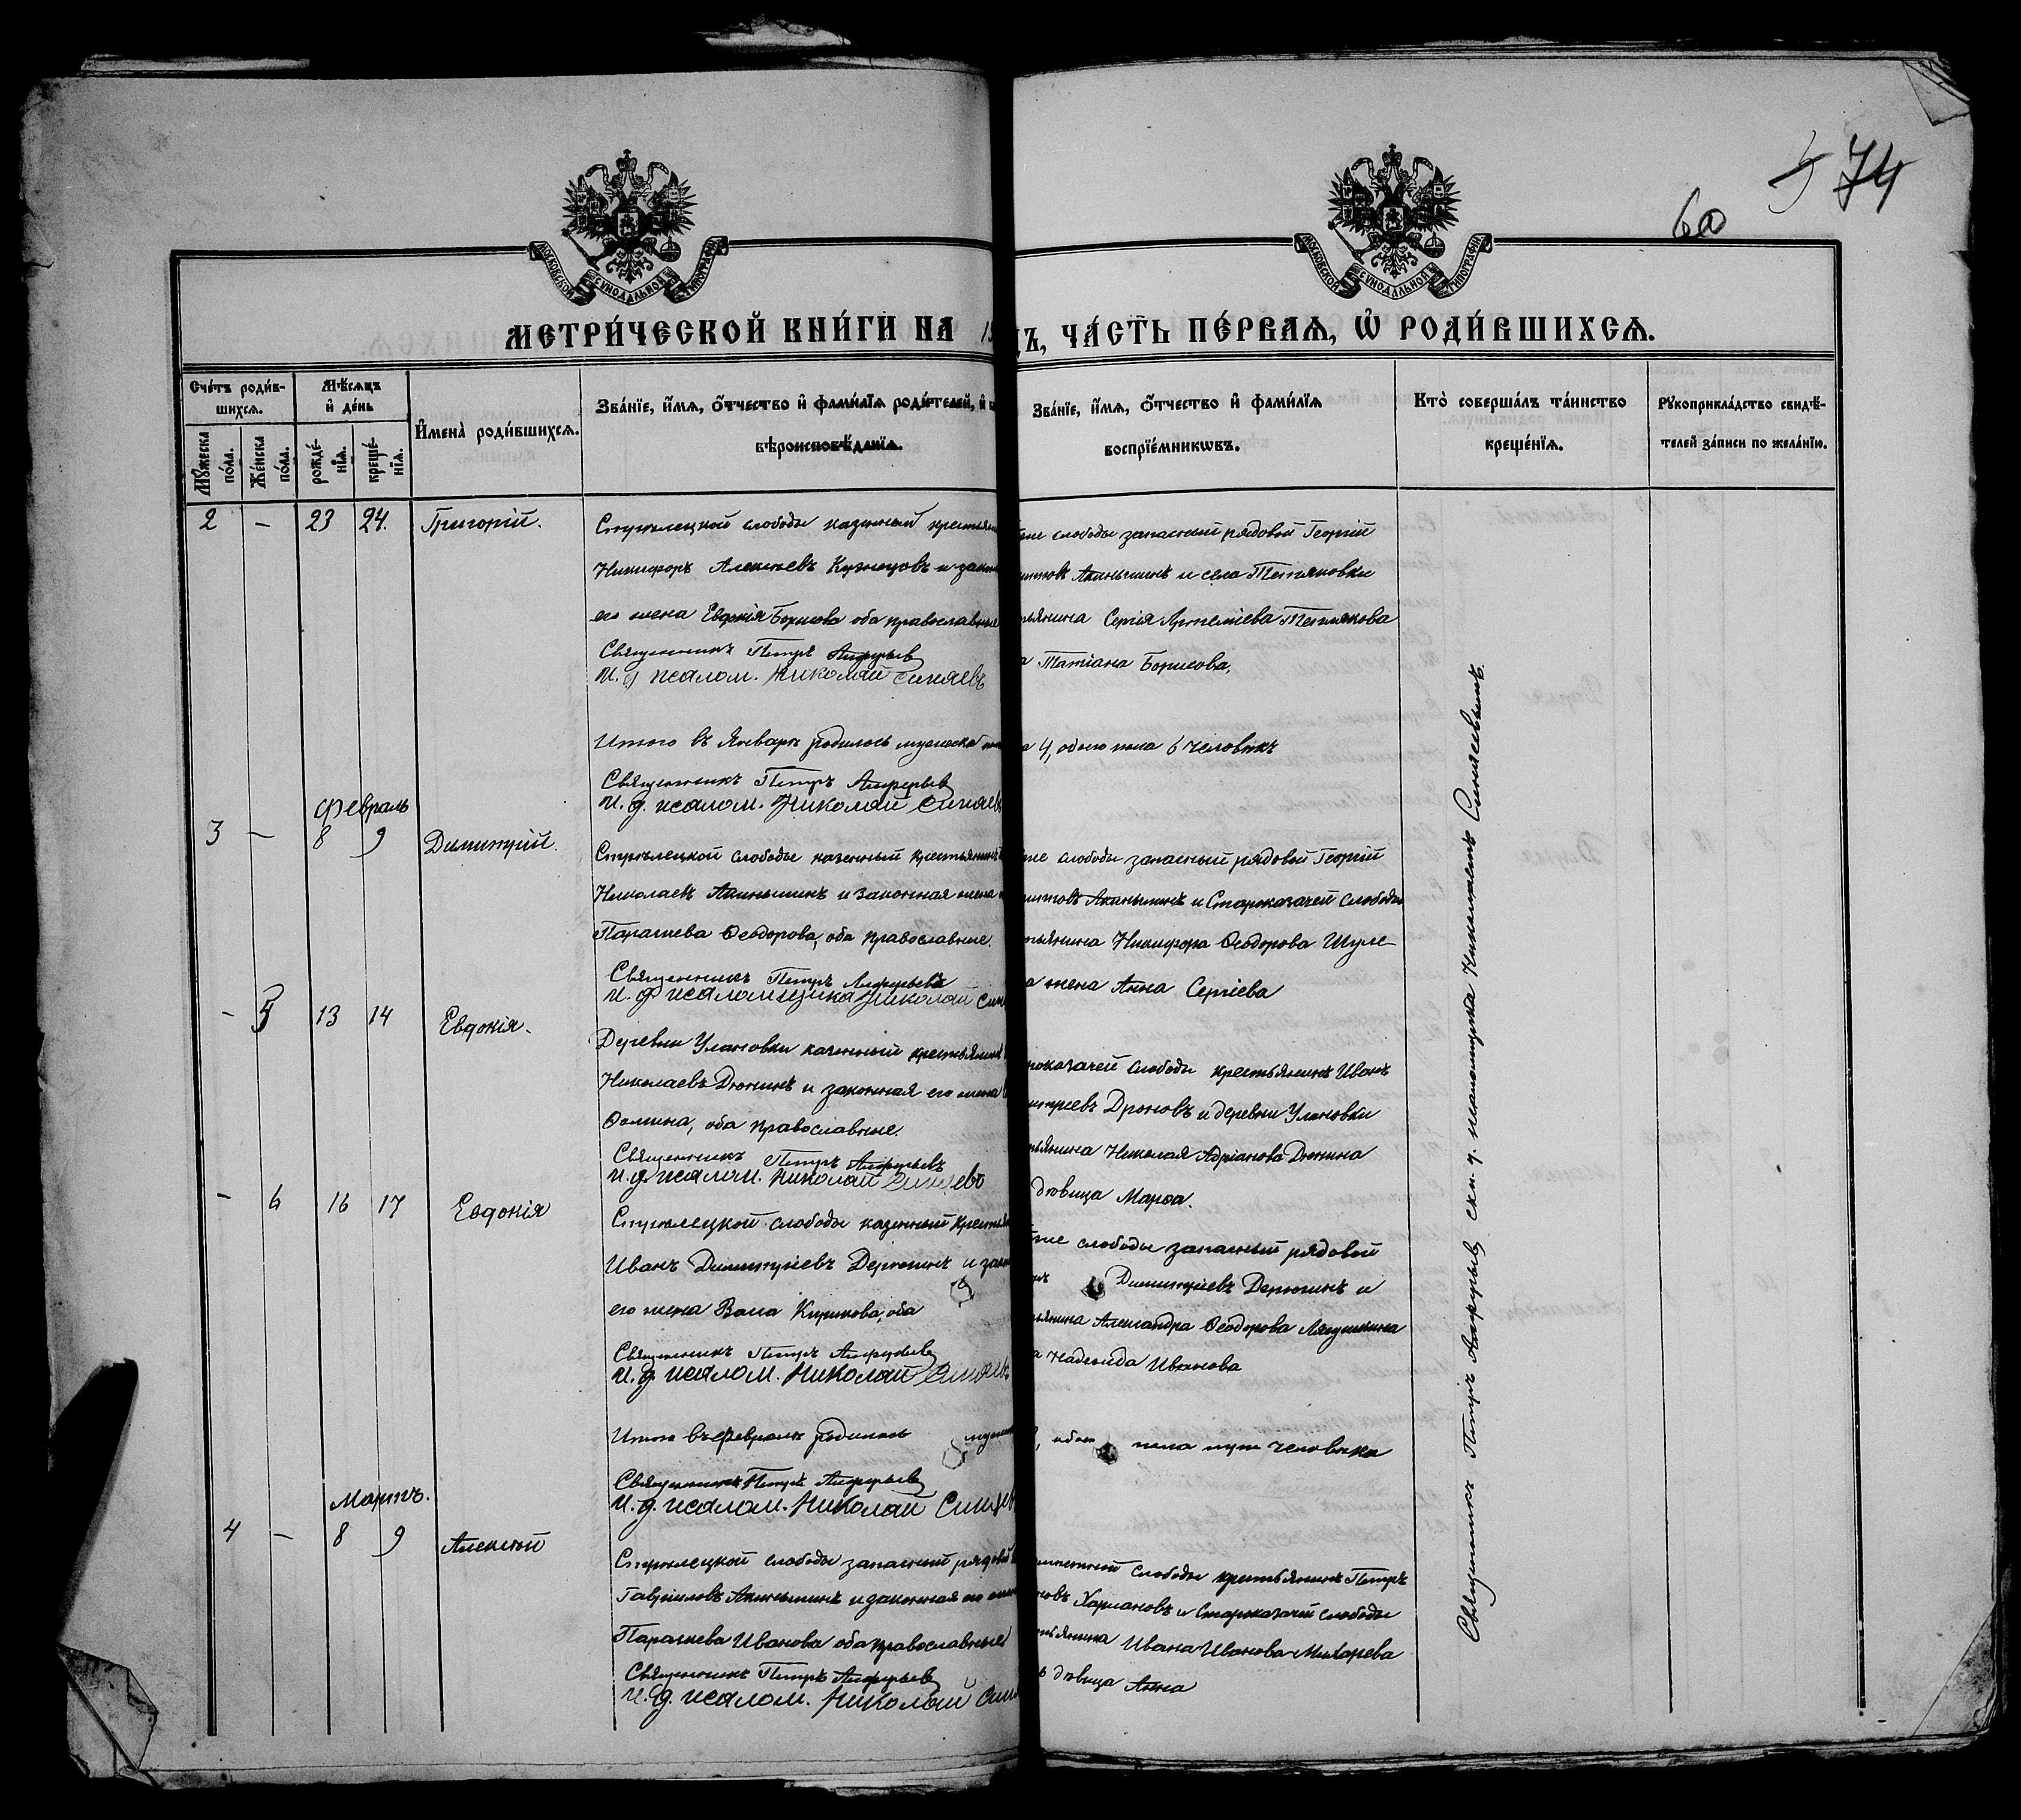 574
60
МОСКОВСКОЙ СѴНОДАЛЬНОЙ ТИПОГРАФІИ
МОСКОВСКОЙ СѴНОДАЛЬНОЙ ТИПОГРАФІИ
МЕТРИ́ЧЕСКОЙ КНИ́ГИ НА 1
ДЪ, ЧА́СТЬ ПЕ́РВАѦ, Ѡ҆ РОДИ́ВШИХСѦ.
Сче́тъ роди́в-
шихсѧ.
Мѹ́жеска
по́ла.
Же́нска
по́ла.
Мѣ́сѧцъ
и҆ де́нь
рожде́-
нїѧ.
креще́-
нїѧ.
И҆мена̀ роди́вшихсѧ.
Зва́нїе, и҆́мѧ, ѻ҆́тчество и҆ фами́лїѧ роди́телей, и҆
вѣроисповѣ́данїѧ.
Зва́нїе, и҆́мѧ, ѻ҆́тчество и҆ фами́лїѧ
воспрїе́мникѡвъ.
Кто̀ соверша́лъ та́инство
креще́нїѧ.
Рꙋкоприкла́дство свидѣ́-
телей за́писи по жела́нїю.
2 - 23 24. Григорій.
Стрѣлецкой слободы казенный крестьян
Никифоръ Алексѣевъ Кузнецовъ и закон
его жена Евдокія Борисова оба православные
Священникъ Петръ Алферьев
И. д псалом. Николай Синяевъ
слободы запасный рядовой Георгій
Аканьшинъ и села Тепляковки
ьянина Сергія Артеміева Теплякова
а Татіана Борисова,
Итого въ Январѣ родилось мужеска
а 4, обоего пола 6 человѣкъ
Священникъ Петръ Алферьев
И. д. псалом. Николай Синяев
Февраль
3 - 8 9 Димитрій.
Стрѣлецкой слободы казенный крестьянинъ
Николаевъ Аканьшинъ и законная жена
Параскева Ѳеодорова, оба православные.
Священникъ Петръ Алферьевъ
И. д псаломщика Николай Син
слободы запасный рядовой Георгій
Аканьшинъ и Староказачей слободы
тьянина Никифора Ѳеодорова Шуле-
а жена Анна Сергіева
- 5 13 14 Евдокія.
Деревни Улановки казенный крестьянинъ
Николаевъ Дюкинъ и законная его жена
Ѳомина, оба православные.
Священникъ Петръ Алферьевъ
И. д. псалом. Николай Синяевъ
роказачей слободы крестьянинъ Иванъ
итріевъ Дроновъ и деревни Улановки
тьянина Николая Адріанова Дюкина
дѣвица Марѳа.
- 6 16 17 Евдокія
Стрѣлецкой слободы казенный крестья
Иванъ Димитріевъ Дерюгинъ и закон
его жена Васса Кирикова, оба
Священникъ Петръ Алферьев
И. д. псалом. Николай Синяевъ
слободы запасный рядовой
Димитріевъ Дерюгинъ и
ьянина Александра Ѳеодорова Лягушкина
а Надежда Иванова
Итого въ Февралѣ родилось мужеск
, обоего пола три человѣка
Священникъ Петръ Алферьев
И. д. псалом. Николай Синяев
Мартъ.
4 - 8 9 Алексѣй
Стрѣлецкой слободы запасный рядовой
Гавриловъ Аканьшинъ и законная его жена
Параскева Иванова оба православные
Священникъ Петръ Алферьев
И. д. псалом. Николай Син
слободы крестьянинъ Петръ
новъ Харлановъ и Староказачей слободы
тьянина Ивана Иванова Михарева
ь дѣвица Анна
Священникъ Петръ Алферьев съ и. д. псаломщика Николаемъ Синяевымъ.